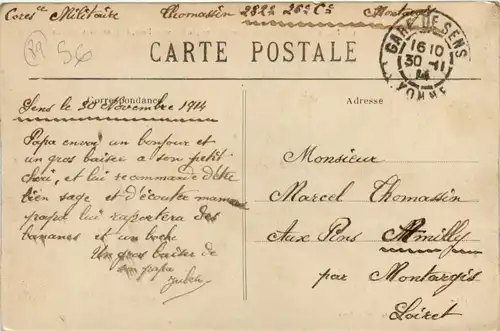 Cores ce Militaire Thomassin 282e 26e Cie Montargis
89
56
CARTE POSTALE
GARE DE SENS
16 10
30 -11
14
YONNE
Correspondance
Adresse
Sens le 30 Novembre 1914
Papa envoi un bonjour et
un gros baiser a son petit
cheri, et lui recommande d'etre
bien sage et d'écouter maman
papa lui raportera des
bananes et un
Un gros baiser de
son papa
Monsieur
Marcel Thomassin
Aux Pins Amilly
par Montargis
Loiret